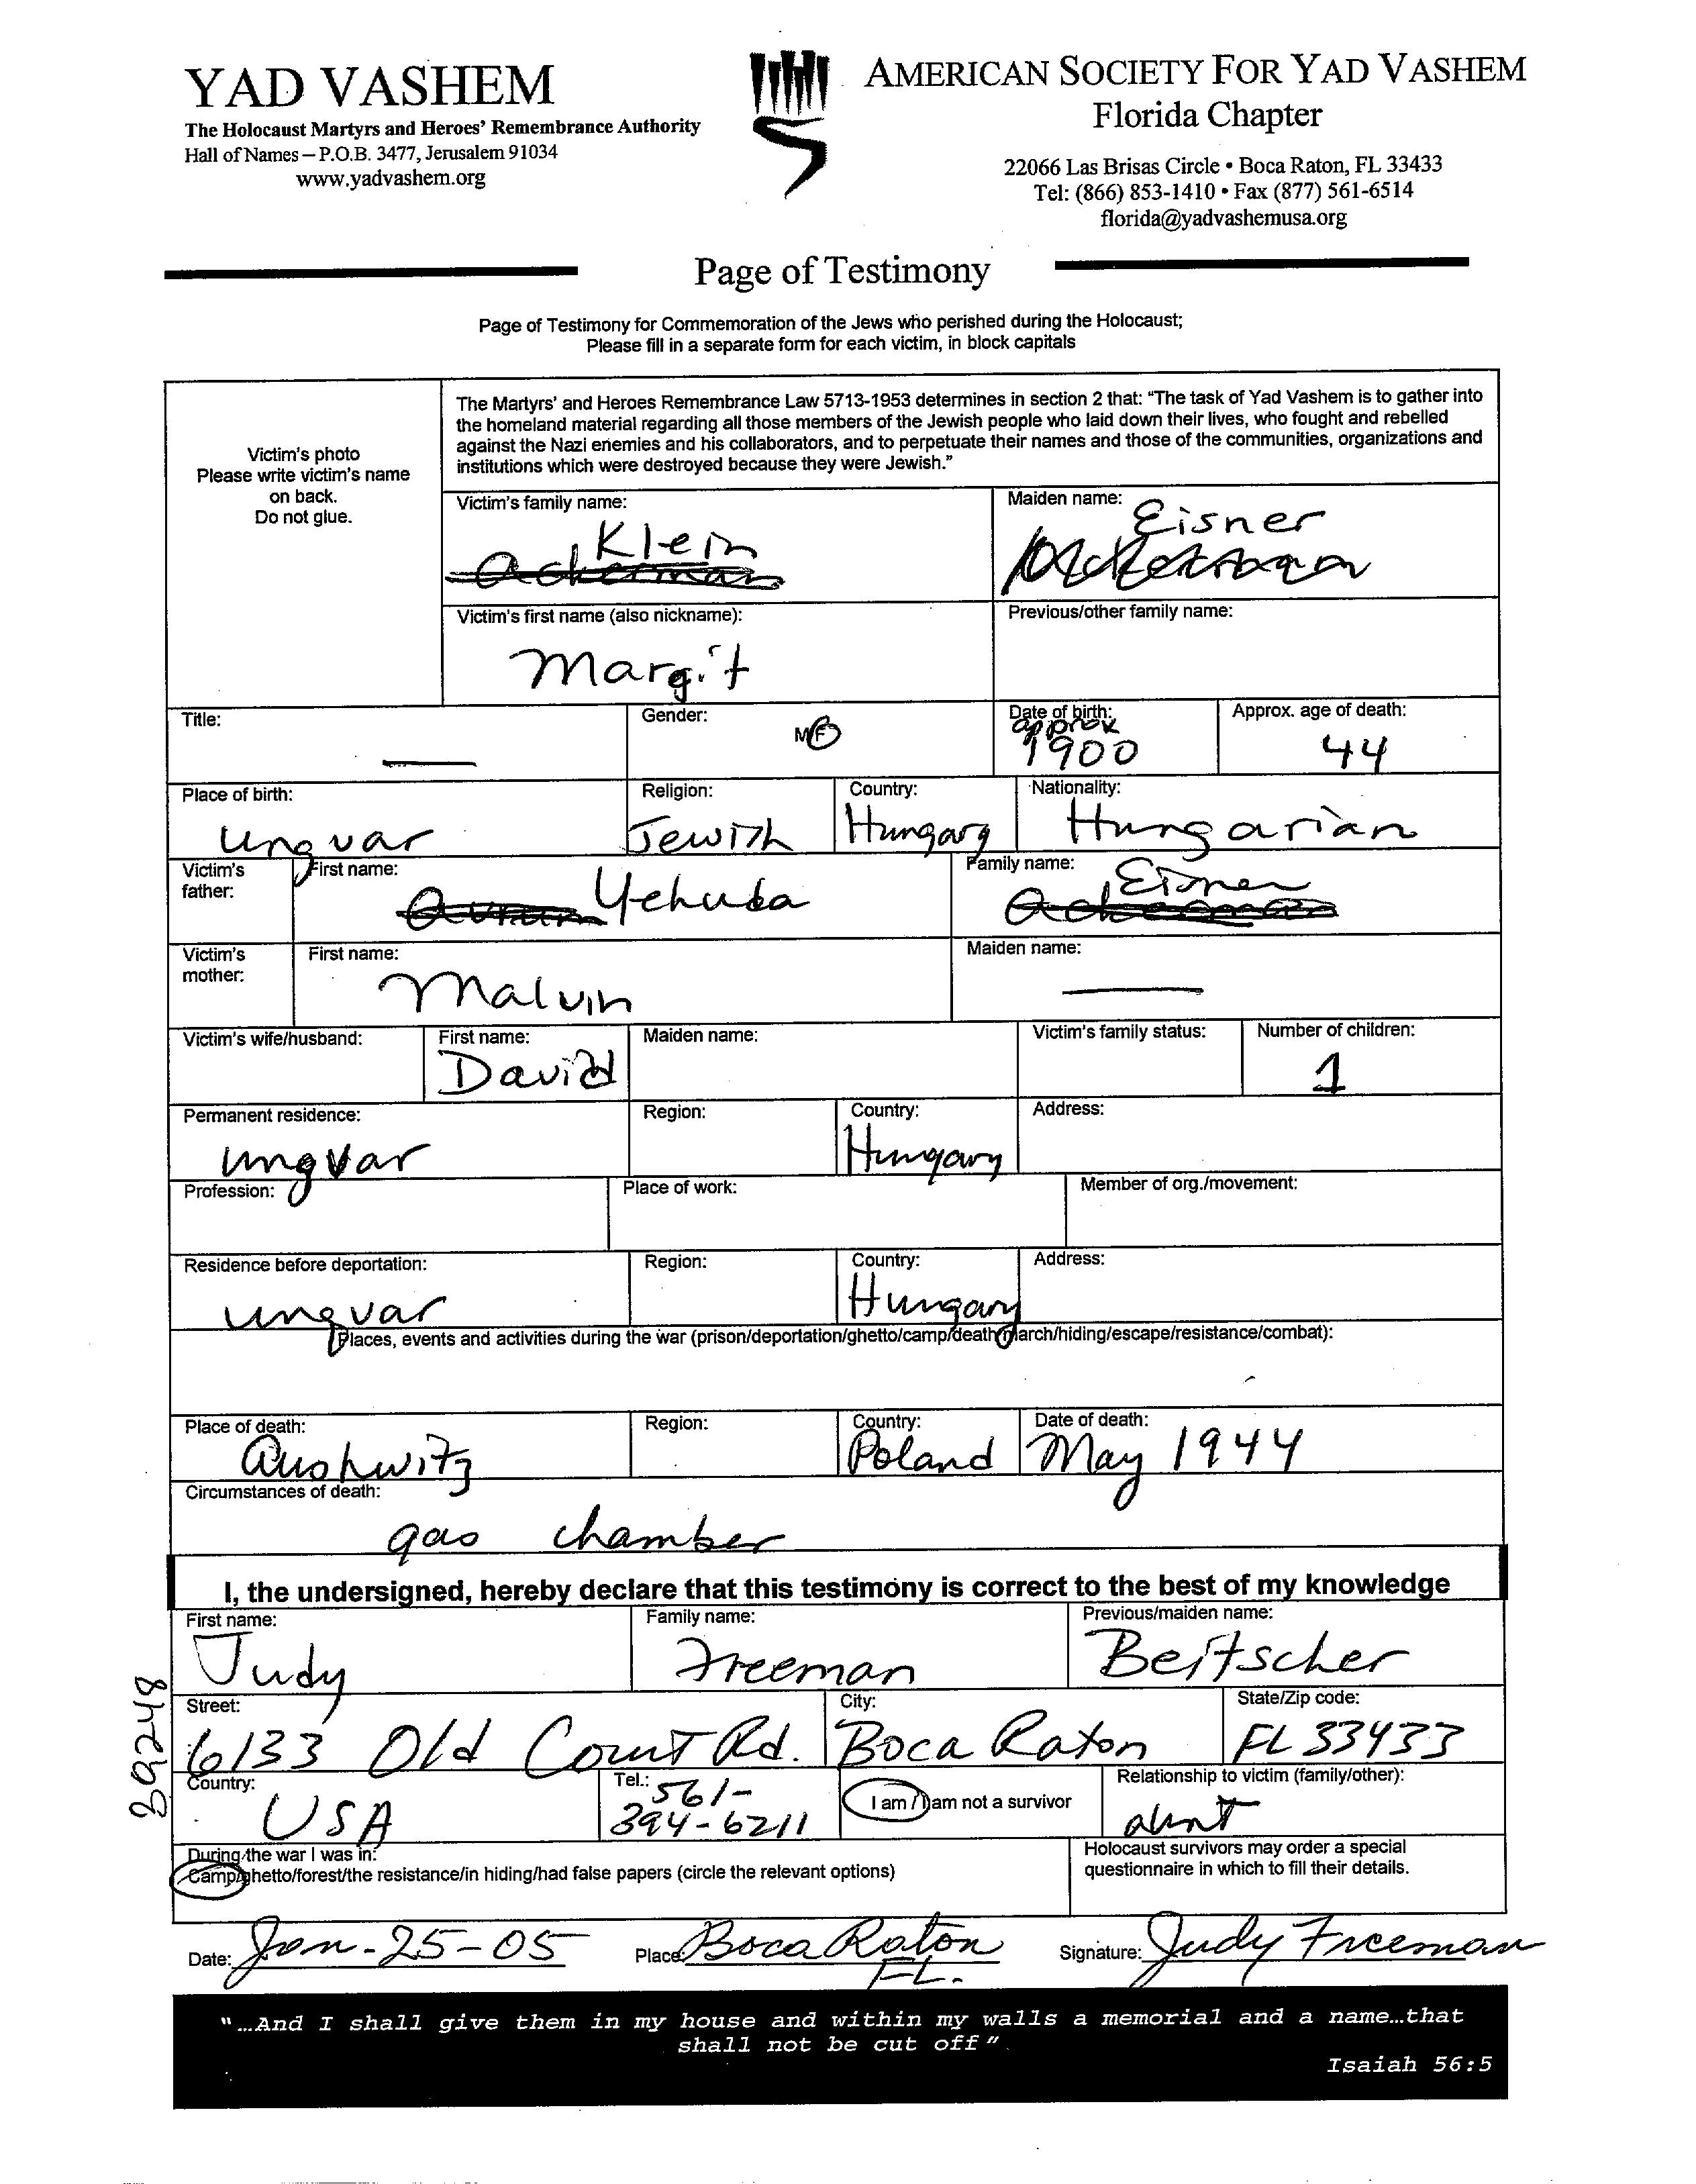 YAD VASHEM
The Holocaust Martyrs and Heroes' Remembrance Authority
Hall of Names – P.O.B. 3477, Jerusalem 91034
www.yadvashem.org
AMERICAN SOCIETY FOR YAD VASHEM
Florida Chapter
22066 Las Brisas Circle • Boca Raton, FL 33433
Tel: (866) 853-1410 • Fax (877) 561-6514
florida@yadvashemusa.org
Page of Testimony
Page of Testimony for Commemoration of the Jews who perished during the Holocaust;
Please fill in a separate form for each victim, in block capitals
Victim's photo
Please write victim's name
on back.
Do not glue.
The Martyrs' and Heroes Remembrance Law 5713-1953 determines in section 2 that: "The task of Yad Vashem is to gather into
the homeland material regarding all those members of the Jewish people who laid down their lives, who fought and rebelled
against the Nazi enemies and his collaborators, and to perpetuate their names and those of the communities, organizations and
institutions which were destroyed because they were Jewish."
Victim's family name:
Klein
Ackerman
Maiden name:
Eisner
Ackerman
Victim's first name (also nickname):
Margit
Previous/other family name:
Title: —
Gender: M/F
Date of birth:
approx
1900
Approx. age of death:
44
Place of birth:
Ungvar
Religion:
Jewish
Country:
Hungary
Nationality:
Hungarian
Victim's
father:
First name:
Avrum Yehuda
Family name:
Eisner
Ackerman
Victim's
mother:
First name:
Malvin
Maiden name:
—
Victim's wife/husband:
First name:
David
Maiden name:
Victim's family status:
Number of children:
1
Permanent residence:
Ungvar
Region:
Country:
Hungary
Address:
Profession:
Place of work:
Member of org./movement:
Residence before deportation:
Ungvar
Region:
Country:
Hungary
Address:
Places, events and activities during the war (prison/deportation/ghetto/camp/death march/hiding/escape/resistance/combat):
Place of death:
Aushwitz
Region:
Country:
Poland
Date of death:
May 1944
Circumstances of death:
gas chamber
I, the undersigned, hereby declare that this testimony is correct to the best of my knowledge
First name:
Judy
Family name:
Freeman
Previous/maiden name:
Beitscher
Street:
6133 Old Court Rd.
City:
Boca Raton
State/Zip code:
FL 33433
Country:
USA
Tel.: 561-
394-6211
I am / I am not a survivor
Relationship to victim (family/other):
aunt
During the war I was in:
Camp/ghetto/forest/the resistance/in hiding/had false papers (circle the relevant options)
Holocaust survivors may order a special
questionnaire in which to fill their details.
Date: Jan-25-05
Place: Boca Raton
FL.
Signature: Judy Freeman
39248
"...And I shall give them in my house and within my walls a memorial and a name...that
shall not be cut off".
Isaiah 56:5